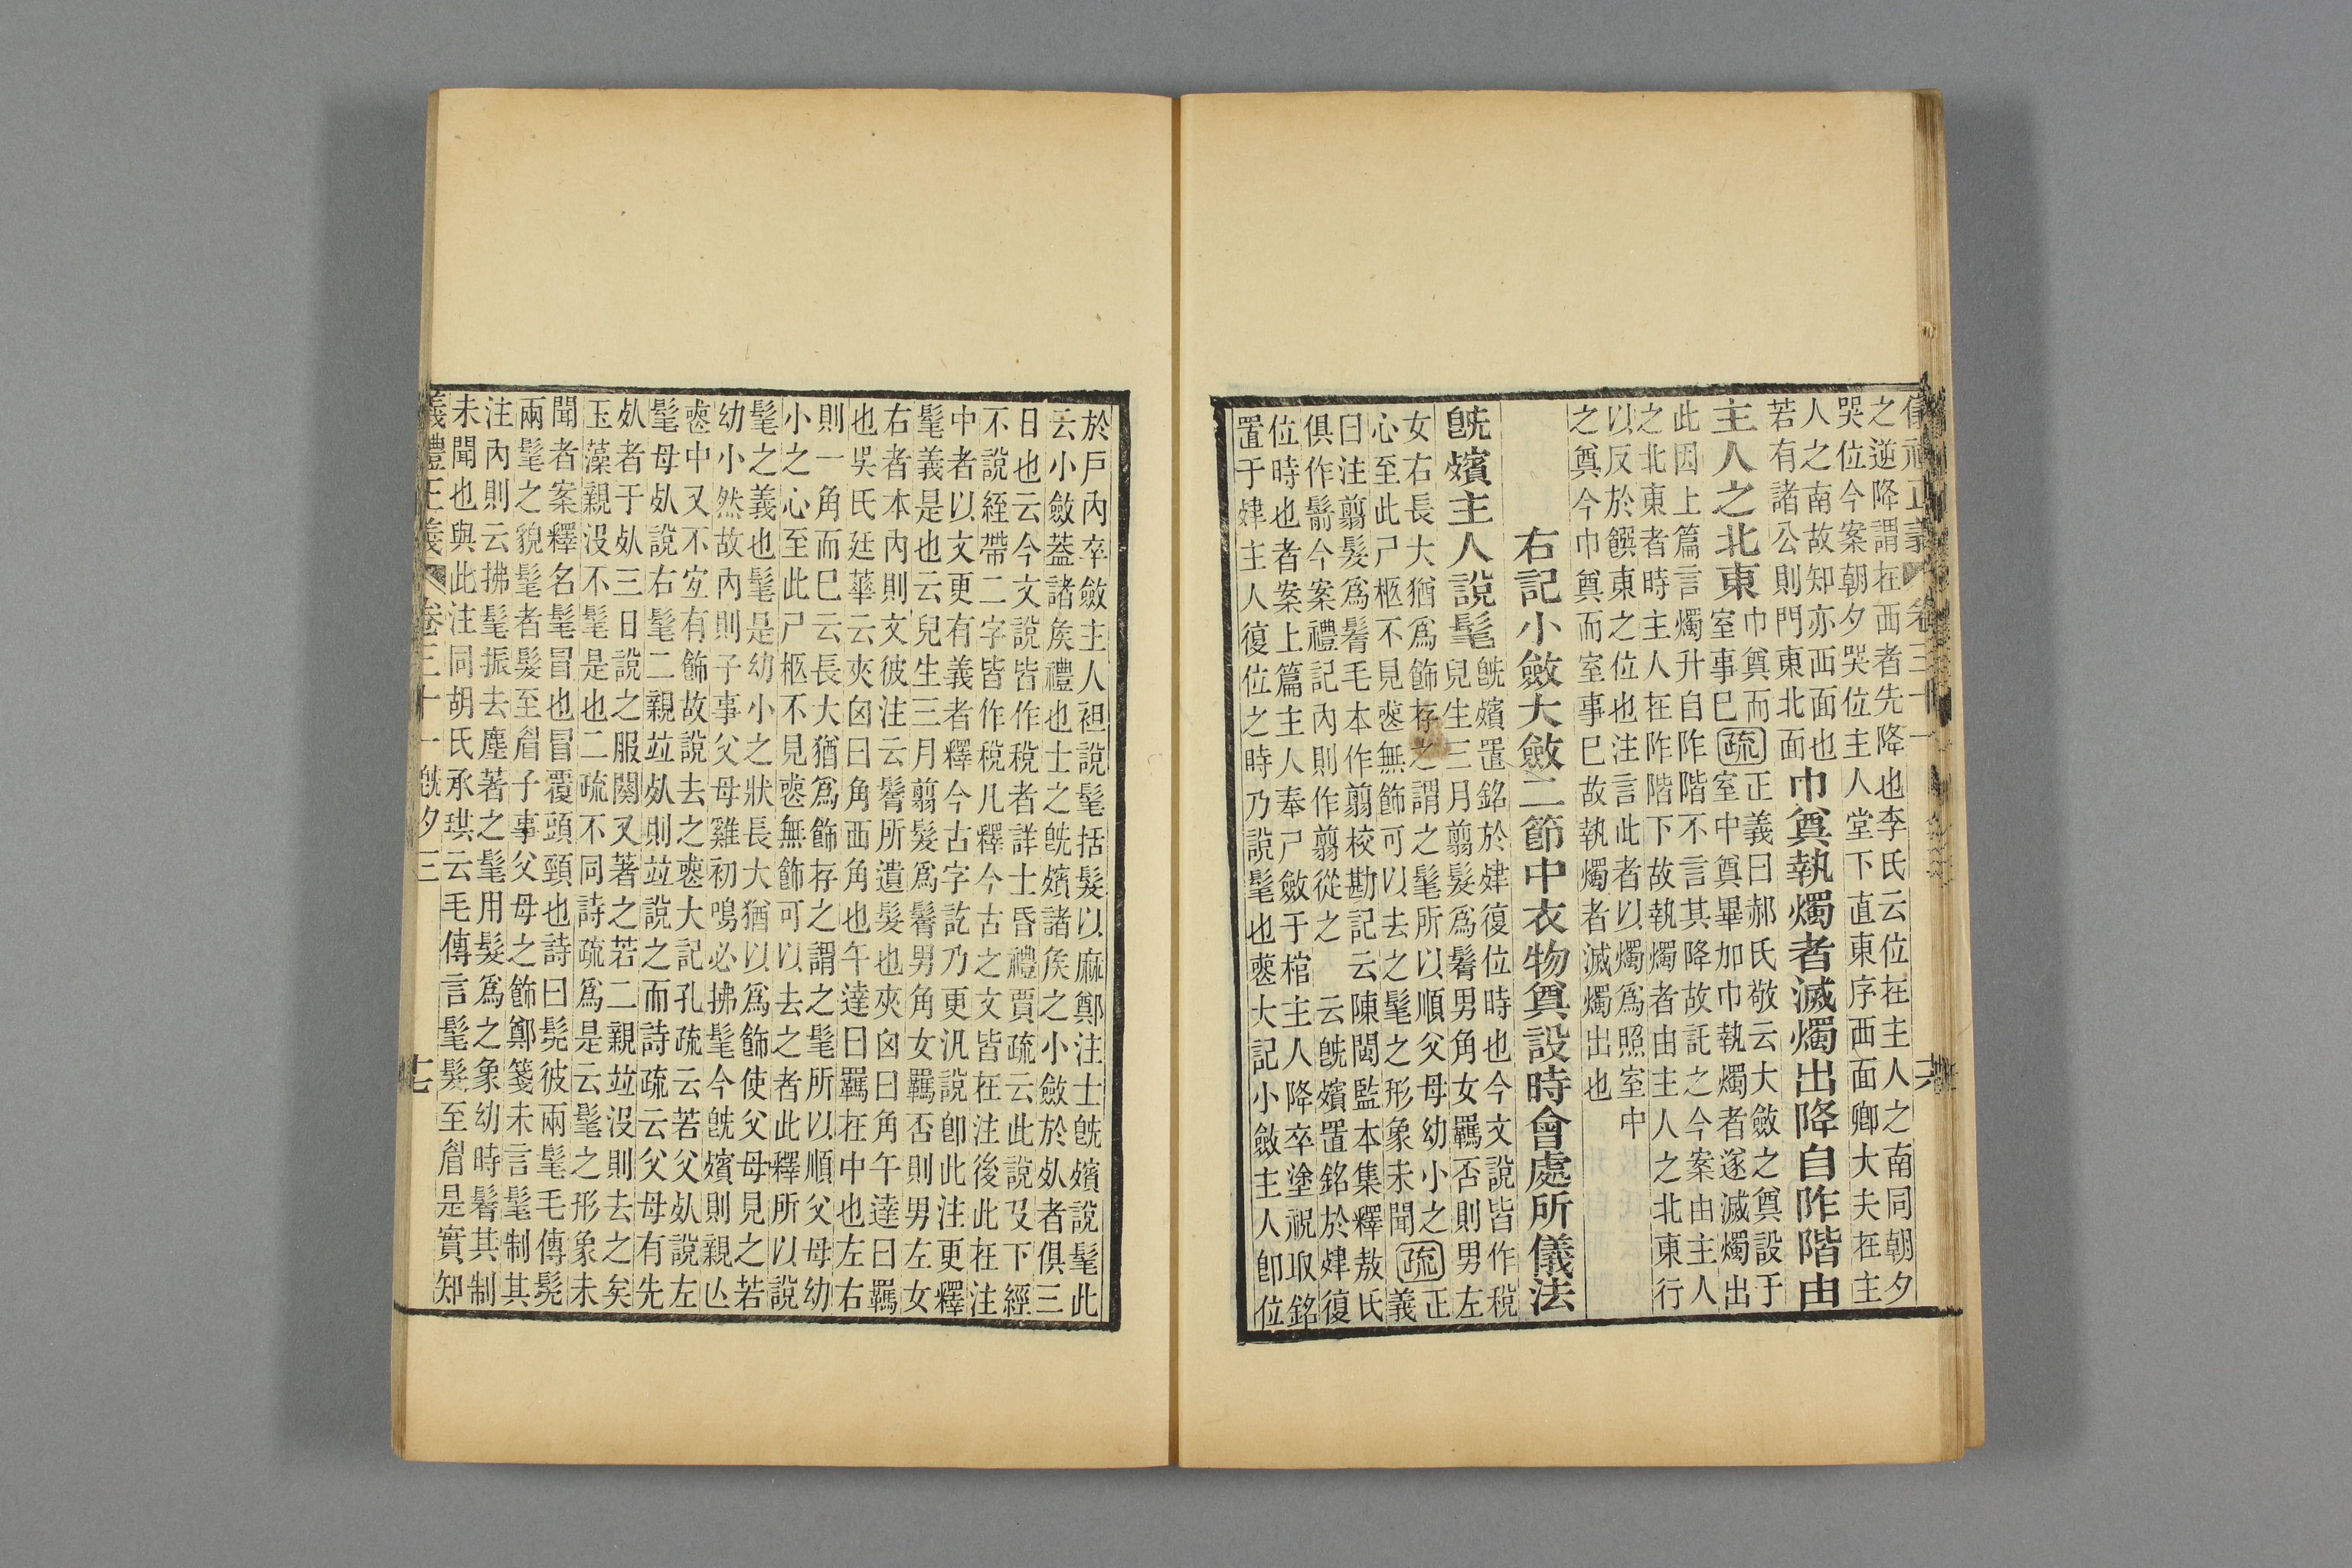 儀禮正義 卷三十一 六
之逆降謂在西者先降也李氏云位在主人之南同朝夕
哭位今案朝夕哭位主人堂下直東序西面卿大夫在主
人之南故知亦西面也
若有諸公則門東北面
巾奠執燭者滅燭出降自阼階由
主人之北東
巾奠而
室事已
疏
正義曰郝氏敬云大斂之奠設于
室中奠畢加巾執燭者遂滅燭出
此因上篇言燭升自阼階不言其降故記之今案由主人
之北東者時主人在阼階下故執燭者由主人之北東行
以反於饌東之位也注言此者以燭爲照室中
之奠今巾奠而室事已故執燭者滅燭出也
右記小斂大斂二節中衣物奠設時會處所儀法
旣殯主人說髦
旣殯置銘於肂復位時也今文說皆作稅
兒生三月翦髮爲鬌男角女羈否則男左
女右長大猶爲飾存之謂之髦所以順父母幼小之
心至此尸柩不見喪無飾可以去之髦之形象未聞
疏
正
義
曰注翦髮爲鬌毛本作翦校勘記云陳閩監本集釋敖氏
俱作鬋今案禮記內則作翦從之 云旣殯置銘於肂復
位時也者案上篇主人奉尸斂于棺主人降卒塗祝取銘
置于肂主人復位之時乃說髦也喪大記小斂主人卽位
於戶內卒斂主人袒說髦括髮以麻鄭注士旣殯說髦此
云小斂蓋諸侯禮也士之旣殯諸侯之小斂於死者俱三
日也云今文說皆作稅者詳士昏禮賈疏云此說及下經
不說絰帶二字皆作稅凡釋今古之文皆在注後此在注
中者以文更有義者釋今古字訖乃更汎說卽此注更釋
髦義是也云兒生三月翦髮爲鬌男角女羈否則男左女
右者本內則文彼注云鬌所遺髮也夾囟曰角午達曰羈
也吳氏廷華云夾囟曰角西角也午達曰羈在中也左右
則一角而已云長大猶爲飾存之謂之髦所以順父母幼
小之心至此尸柩不見喪無飾可以去之者此釋所以說
髦之義也髦是幼小之狀長大猶以爲飾使父母見之若
幼小然故內則子事父母雞初鳴必拂髦今旣殯則親亾
喪中又不宐有飾故說去之喪大記孔疏云若父死說左
髦母死說右髦二親竝死則竝說之而詩疏云父母有先
死者于死三日說之服闋又著之若二親竝沒則去之矣
玉藻親沒不髦是也二疏不同詩疏爲是云髦之形象未
聞者案釋名髦冒也冒覆頭頸也詩曰髧彼兩髦毛傳髧
兩髦之貌髦者髮至眉子事父母之飾鄭箋未言髦制其
注內則云拂髦振去塵著之髦用髮爲之象幼時鬌其制
未聞也與此注同胡氏承珙云毛傳言髦髮至眉是實知
義禮正義 卷三十一旣夕三 七